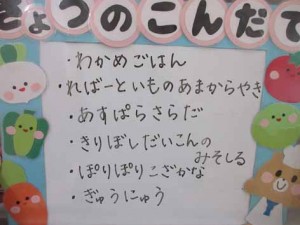 きょうのこんだて
・わかめごはん
・ればーといものあまからやき
・あすぱらさらだ
・きりぼしだいこんの
みそしる
・ぽりぽりこざかな
・ぎゅうにゅう